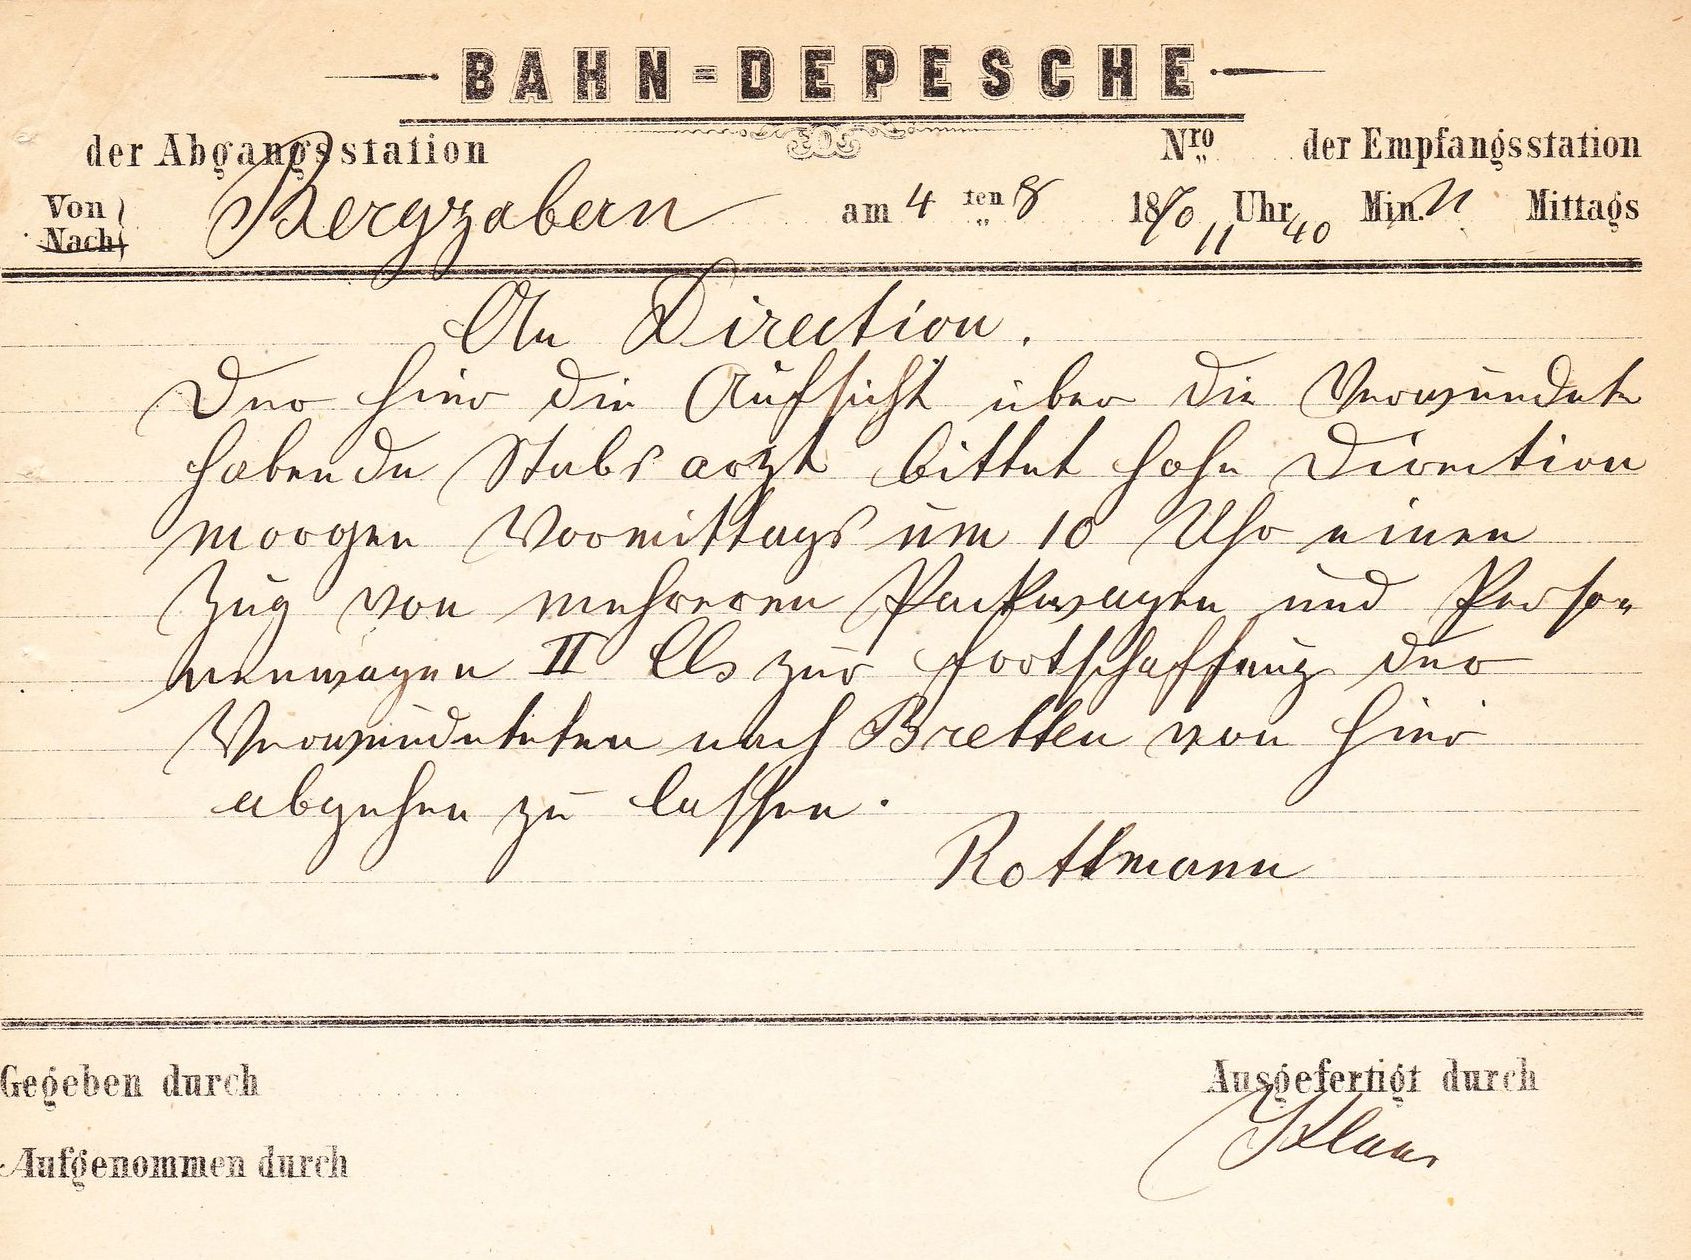 BAHN=DEPESCHE
der Abgangsstation Nro der Empfangsstation
Von Nach Bergzabern am 4 ten 8 1870 11 Uhr 40 Min. N Mittags
An Direction.
Der hier die Aufsicht über die Verwundete
habende Stabsarzt bittet hohe Direction
morgen Vormittags um 10 Uhr einen
Zug von mehreren Packwagen und Perso=
nenwagen II Cls zur Fortschaffung der
Verwundeteten nach Bretten von hier
abgehen zu lassen.
Rottmann
Gegeben durch Ausgefertigt durch
Aufgenommen durch